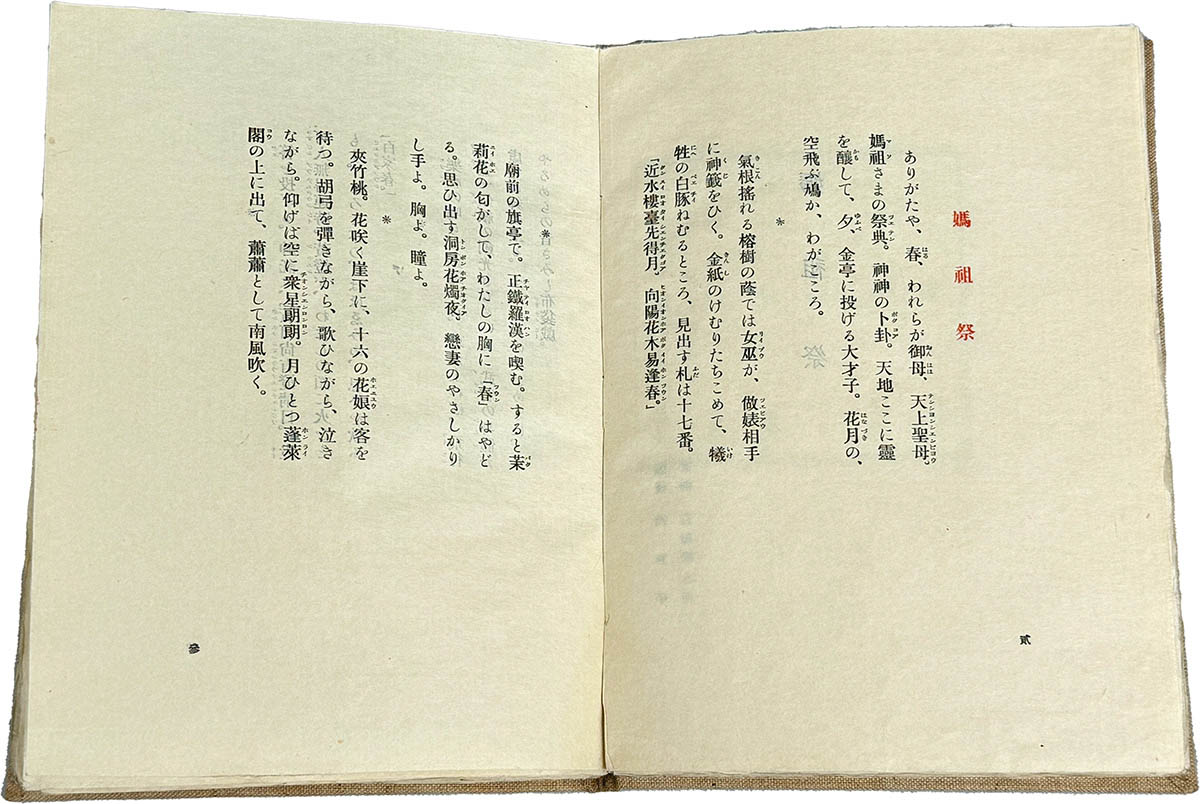 媽祖祭
ありがたや、春、われらが御母、天上聖母。
媽祖さまの祭典。神神の卜卦。天地ここに靈
を釀して、夕、金亭に投げる大才子。花月の、
空飛ぶ鳩か、わがこころ。
*
氣根搖れる榕樹の蔭では女巫が、倣婊相手
に神籤をひく。金紙のけむりたちこめて、犧
牲の白豚ねむるところ、見出す札は十七番。
「近水樓臺先得月。向陽花木易逢春。」
貳
廟前の旗亭で。正鐵羅漢を喫む。すると茉
莉花の匂がして、わたしの胸に「春」はやど
る。思ひ出す洞房花燭夜。戀妻のやさしかり
し手よ。胸よ。瞳よ。
*
夾竹桃。花咲く崖下に、十六の花娘は客を
待つ。胡弓を彈きながら、歌ひながら、泣き
ながら。仰げば空に衆星朗朗。月ひとつ蓬萊
閣の上に出て、蕭蕭として南風吹く。
參